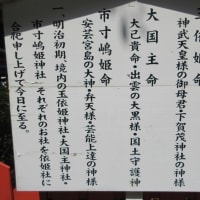 神武天皇様の御母君・下賀茂神社の神様
大国主命
大己貴命・出雲の大黒様・国土守護神
市寸嶋姫命
安芸宮島の大神・弁天様・芸能上達の神様
一、明治初期、境内の玉依姫神社・大国主神社・
市寸嶋姫神社、それぞれのお社を依姫社に
合祀申し上げて今日に至る。